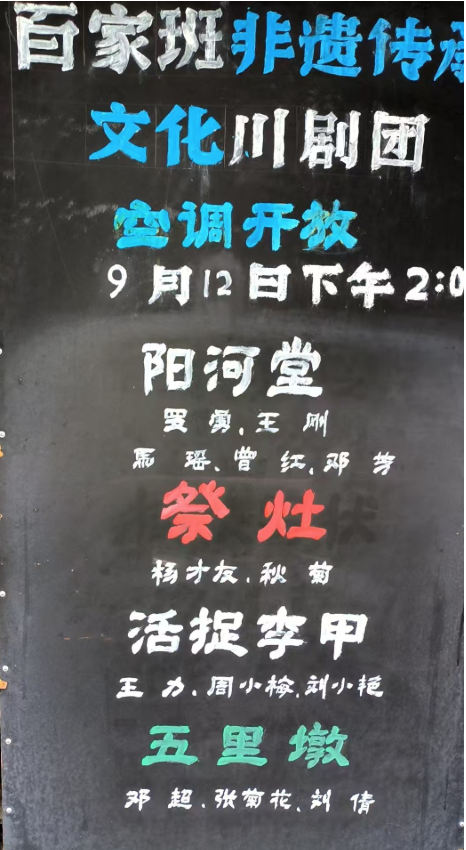 百家班非遗传承
文化川剧团
空调开放
9月12日下午2:0
阳河堂
罗勇、王刚
马瑶、曾红、邓芳
祭灶
杨才友、秋菊
活捉李甲
王力、周小梅、刘小艳
五里墩
邓超、张菊花、刘倩